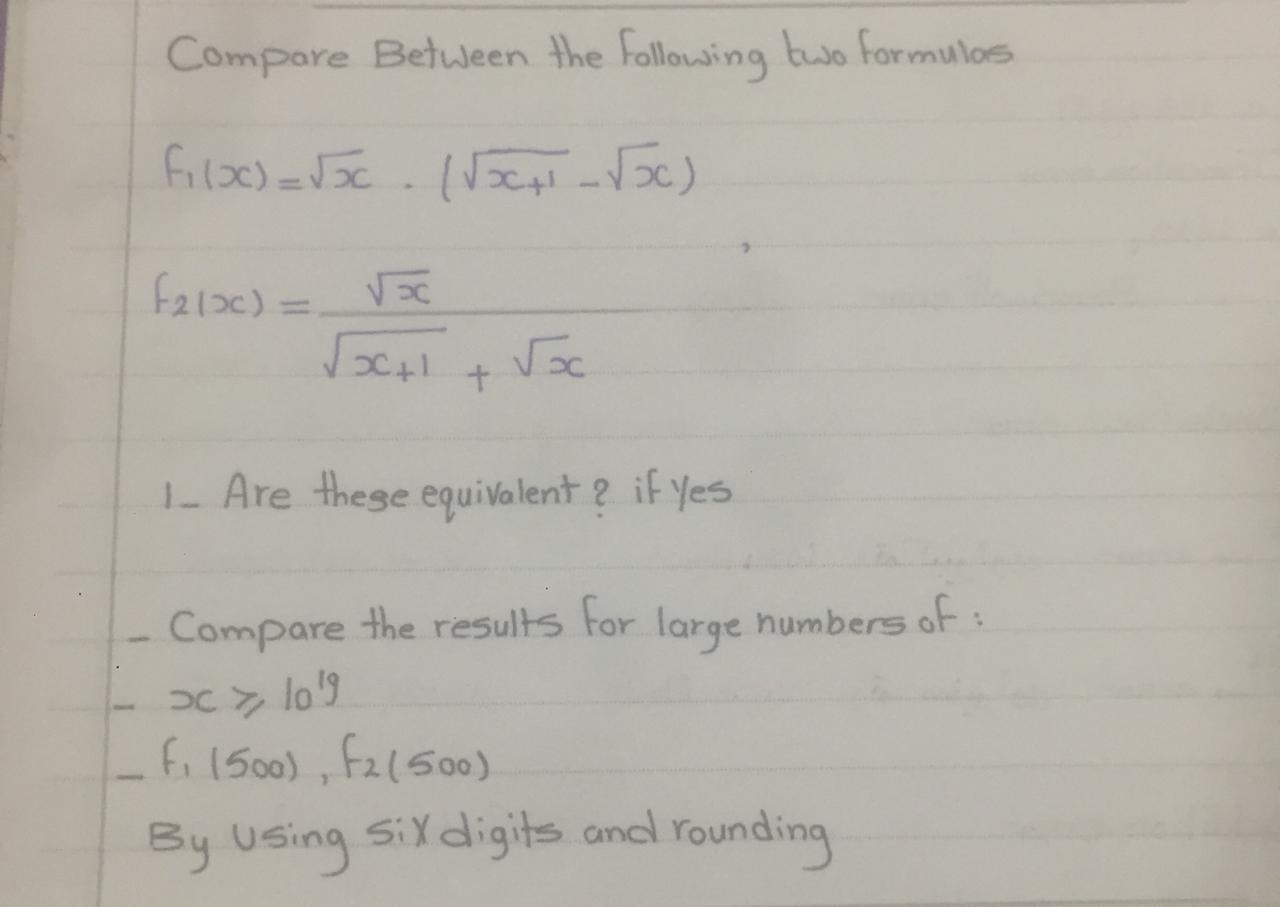 Compare Between the following two formulas
f₁(x) = √x . (√x+1 - √x)
,
f₂(x) = √x
√x+1 + √x
1- Are these equivalent? if Yes
- Compare the results for large numbers of :
- x ⩾ 10¹⁹
- f₁(500), f₂(500)
By Using Six digits and rounding